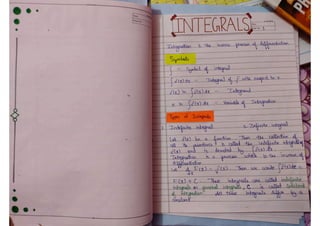 INTEGRALS
Integration is the inverse process of differentiation
Symbols
∫ → Symbol of integral
∫ f(x) dx → Integral of f with respect to x
f(x) in ∫ f(x) dx → Integrand
x in ∫ f(x) dx → Variable of Integration
Types of Integrals
1. Indefinite integral 2. Definite integral
Let f(x) be a function. Then the collection of
all its primitives is called the indefinite integral of
f(x) and is denoted by ∫ f(x) dx
Integration is a process which is the inverse of
differentiation
F(x) + C. These integrals are called indefinite
integrals or general integrals, C is called constant
of integration. All these integrals differ by a
constant